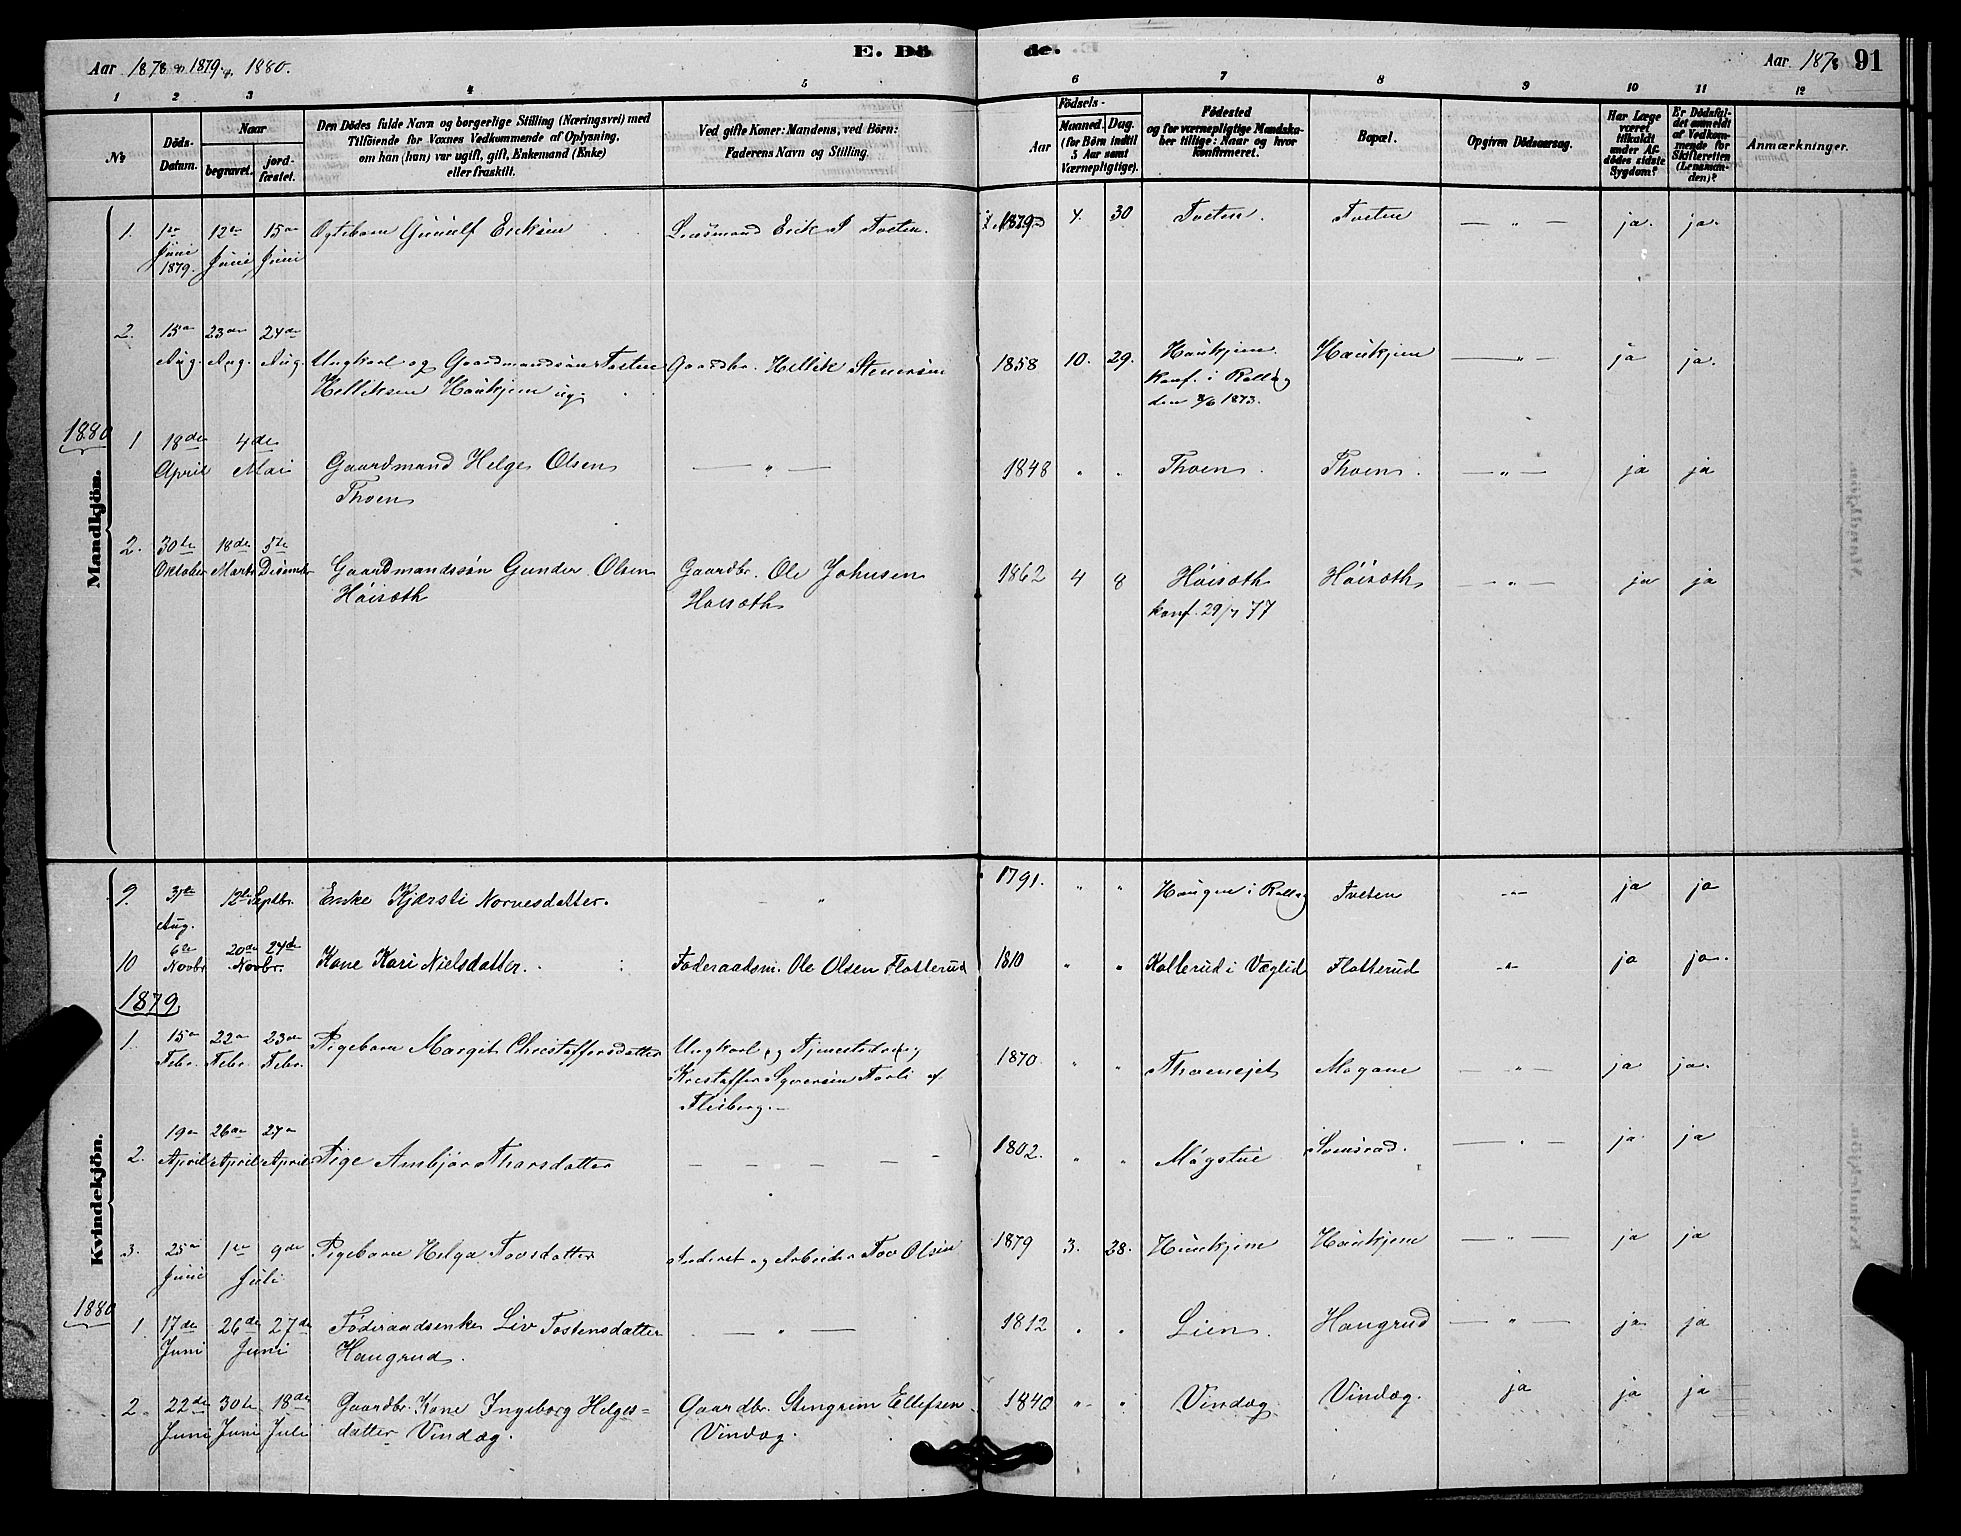 Aar 1878 & 1879 & 1880.
E. Döde.
Aar 187 91
1 2 3 4 5 6 7 8 9 10 11 12
No
Döds-Datum.
Naar
begravet.
jord-fæstet.
Den Dödes fulde Navn og borgerlige Stilling (Næringsvei) med
Tilföiende for Voxnes Vedkommende af Oplysning,
om han (hun) var ugift, gift, Enkemand (Enke)
eller fraskilt.
Ved gifte Koner: Mandens, ved Börn:
Faderens Navn og Stilling.
Födsels-
Aar
Maaned. Dag.
(for Börn indtil
5 Aar samt
Værnepligtige).
Födested
og for værnepligtige Mandska-
ber tillige: Naar og hvor
konfirmeret.
Bopæl.
Opgiven Dödsaarsag.
Har Læge
været
tilkaldt
under Af-
dödes sidste
Sygdom?
Er Dödsfal-
det anmeldt
af Vedkom-
mende for
Skifteretten
(Lensman-
den)?
Anmærkninger.
Mandkjön.
1. 1ste Juni 1879. 12te Juni 15de Juni Ægtebarn Gunulf Eriksen Lensmand Erik Tveten. 1879 4. 30 Tveten. Tveten — " — ja. ja.
2. 15de Aug. 23de Aug. 24de Aug. Ungkarl og Gaardmandssøn Tosten Gaardbr. Hellik Stenersen 1858 10. 29. Haukjem. Haukjem — " — ja ja.
Helliksen Haukjem ug. konf. i Rollag
den 8/6 1873.
1880
1 18de April 4de Mai Gaardmand Helge Olsen — " — 1848 " " Thoen. Thoen. — " — ja ja
Thoen
2. 30te Oktober 18de Marts 5te Disember Gaardmandssøn Gunder Olsen Gaardbr. Ole Johnsen 1862 4 8 Høisæth Høisæth — " — ja ja
Høisæth Høisæth konf. 29/7 77
Kvindekjön.
9. 31te Aug. 12te Septbr. Enke Kjersti Norvesdatter. " 1791. " " Haugen i Rollag Tveten " ja ja
10 6te Novbr 20de 24de Novbr. Kone Kari Nielsdatter. Føderaadsm. Ole Olsen Flotterud 1810 " " Kollerud i Væglid Flotterud " ja ja.
1879
1. 15de Febr. 22de Febr. 23de Febr. Pigebarn Margit Christoffersdatter Ungkarl og Tjenestedreng 1870. " " Thoeneiet Mogane — " — ja ja.
Kristoffer Syversen Forli af
Flesberg.
2. 19de April 26de April 27de April Pige Ambjør Thorsdatter — — — — 1802. " " Møgstue Svensrud. — " — ja. ja
3. 25de Juni 1ste 9de Juli Pigebarn Helga Tovsdatter Inderst og Arbeider Tov Olsen 1879 3. 28. Haukjem Haukjem — " — ja ja
1880
1. 17de Juni 26de 27de Juni Føderaadsenke Liv Tostensdatter — " — 1812 " " Lien. Haugrud — " — ja ja
Haugrud.
2. 22de Juni 30te Juni 18de Juli Gaardbr. Kone Ingeborg Helges- Gaardbr. Stengrim Ellefsen 1840 " " Vindæg. Vindæg. ja ja ja
datter Vindæg. Vindæg.